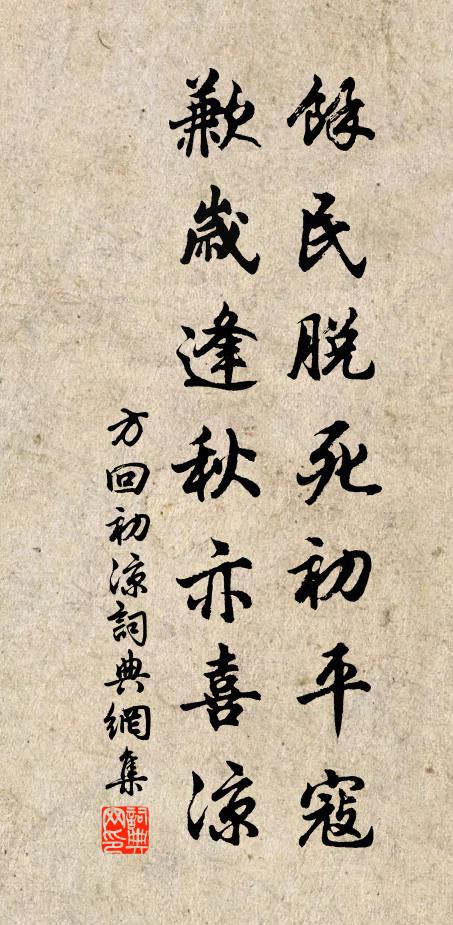 餘民脱死初平寇
歉歲逢秋亦喜涼
方回初涼詞典網集
詞典網印